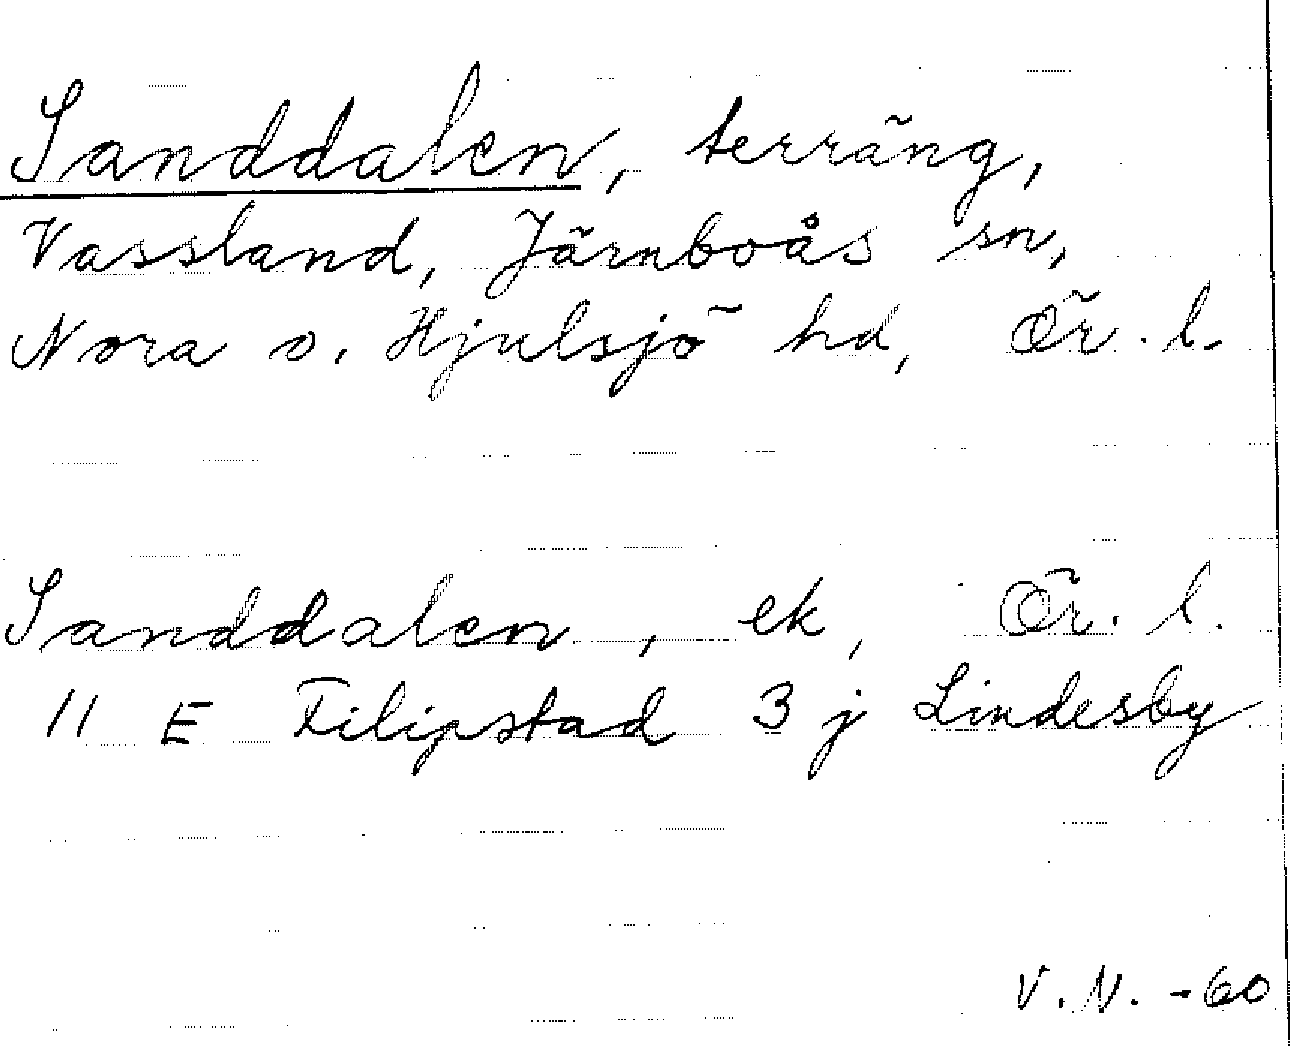 Sanddalen, terräng,
Vassland, Järnboås sn,
Nora o. Hjulsjö hd, Ör. l.
Sanddalen, ek, Ör. l.
11 E Filipstad 3 j Lindesby
V. N. -60